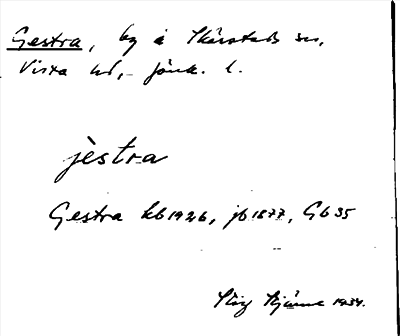 Gestra, by i Skärstads sn,
Vista hd, Jönk. l.
jèstra
Gestra kb 1926, jb 1877, Gb 35
Stig Bjärme 1934.